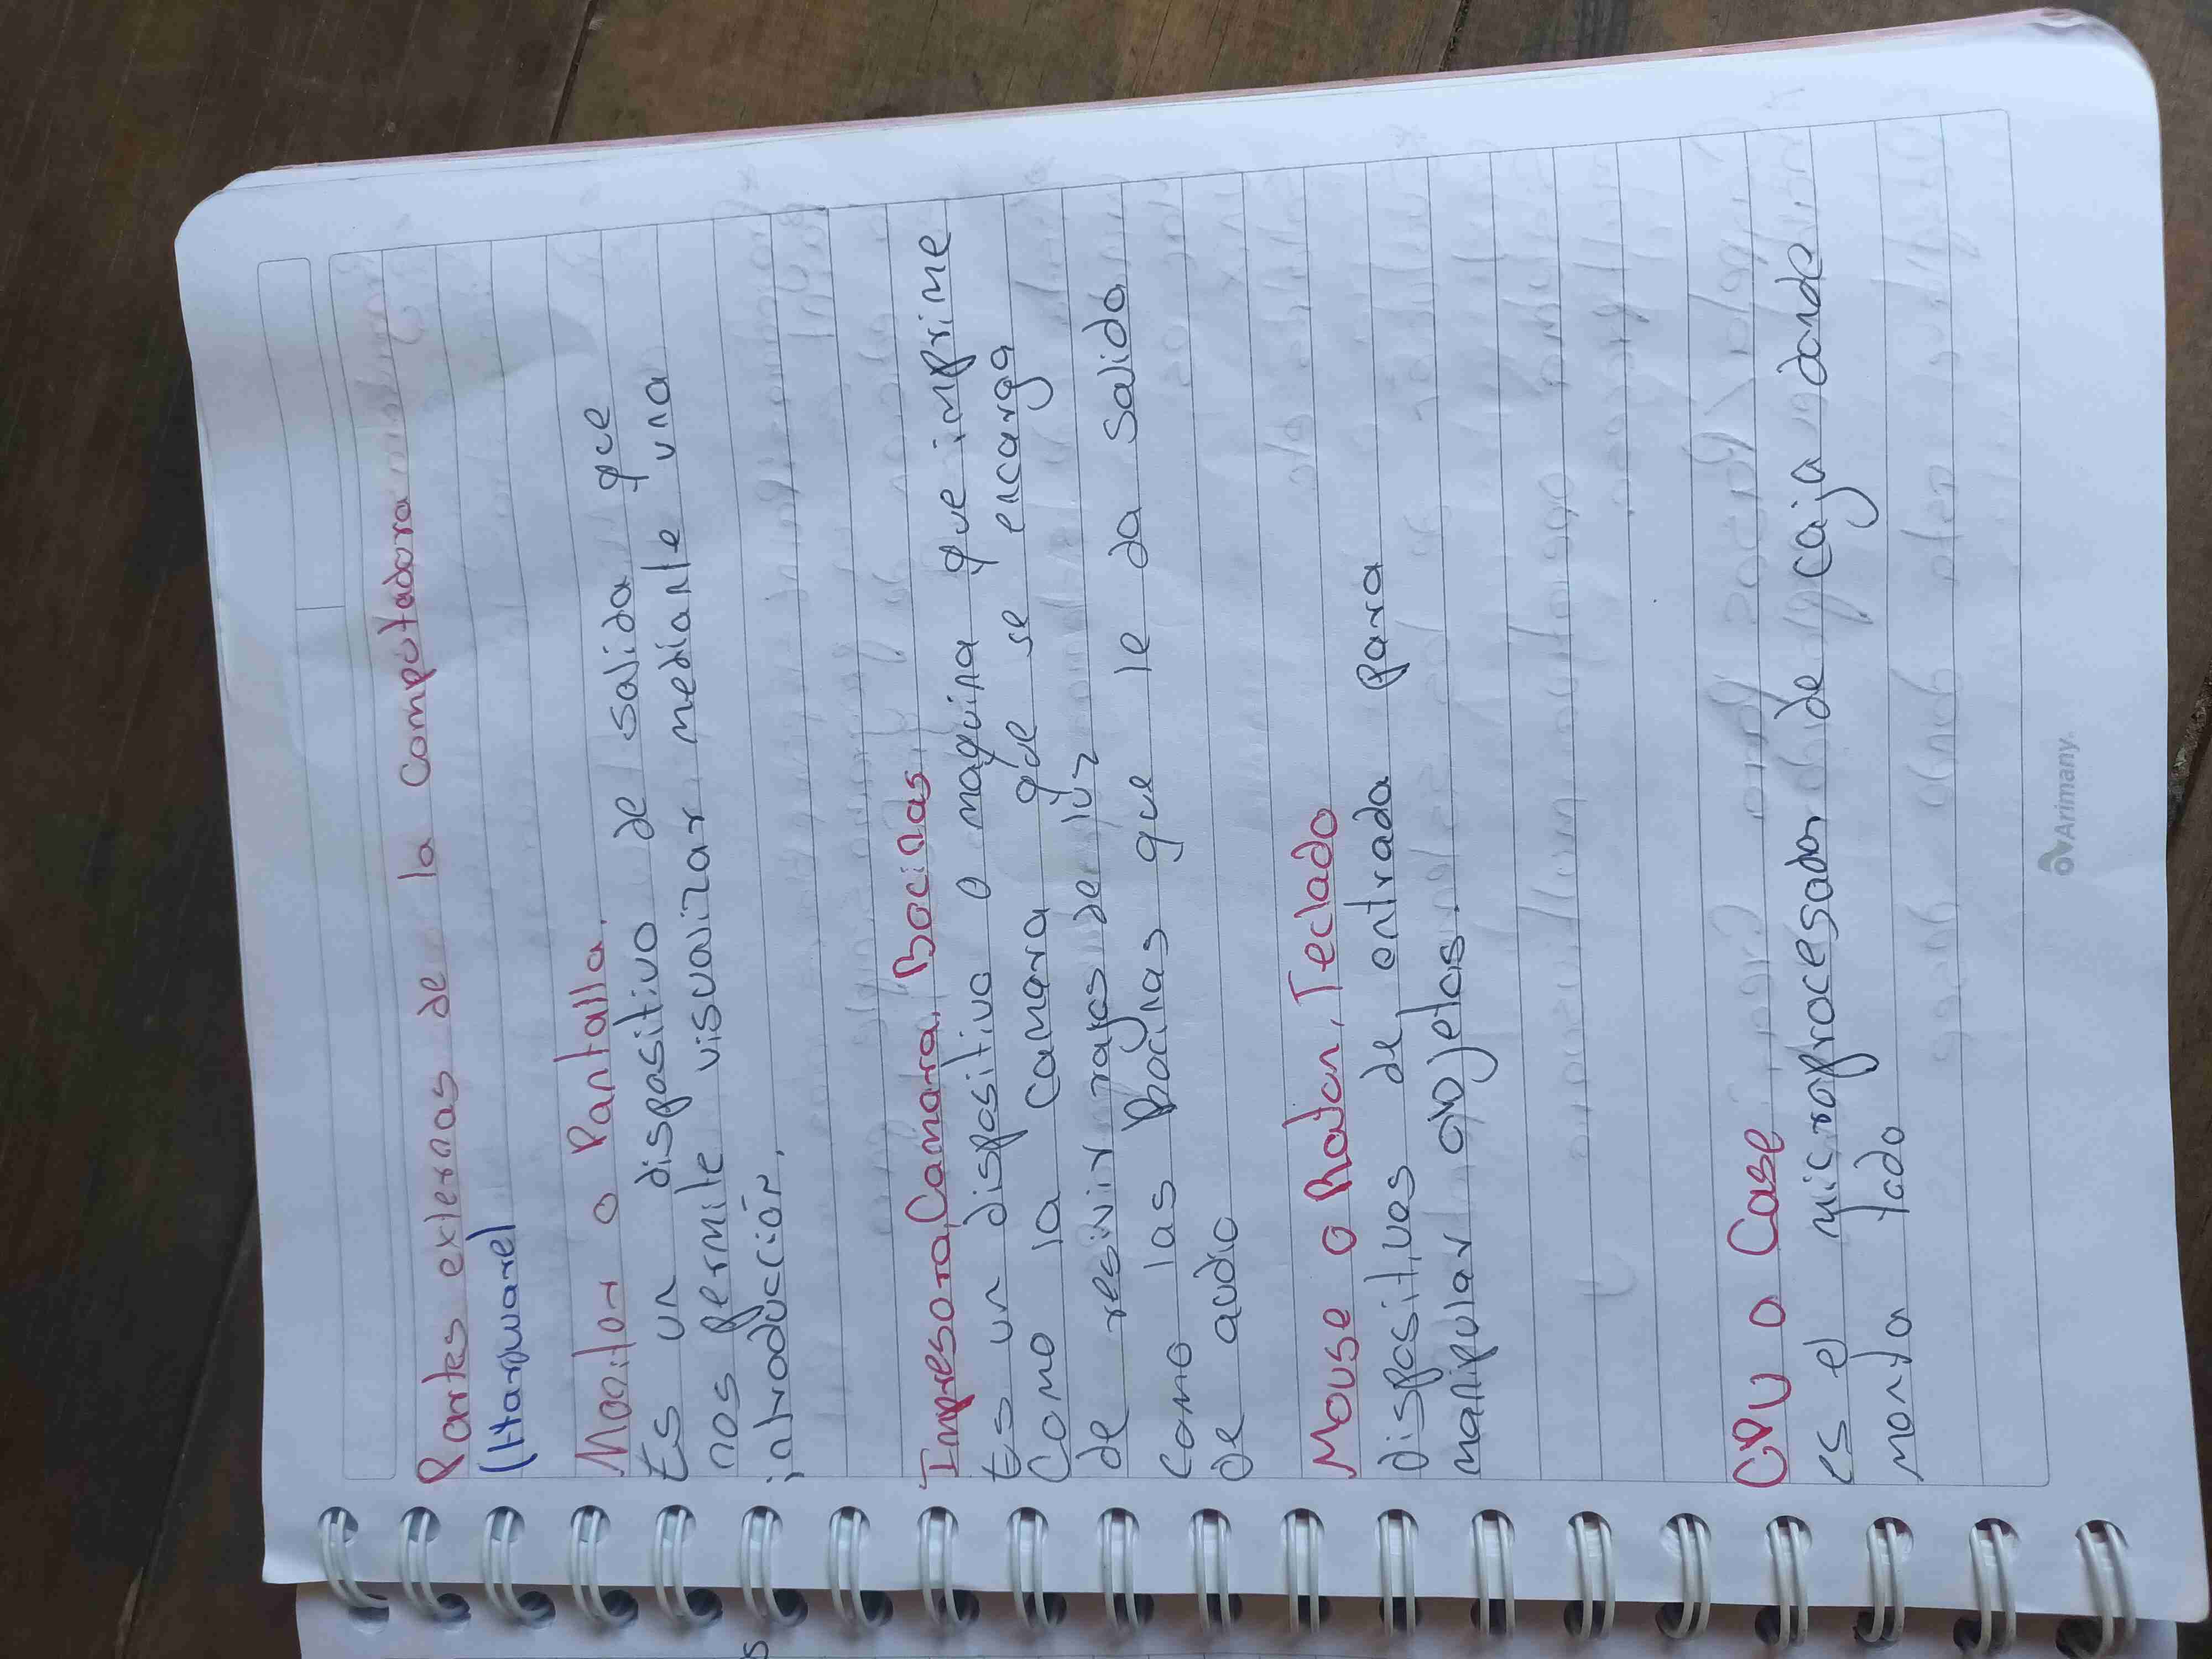 Partes externas de la Computadora
(Harwware)
Monitor o Pantalla.
Es un dispositivo de salida que
nos permite visualizar mediante una
introducción.
Impresora, Camara, Bocinas
Es un dispositivo o maquina que imprime
Como la camara que se encarga
de resivir rayos de luz
como las Bocinas que le da salida
de audio
Mouse o Raton, Teclado
dispositivos de entrada para
manipular objetos.
CPU o Case
es el microprocesador de caja donde
monta todo
Arimany